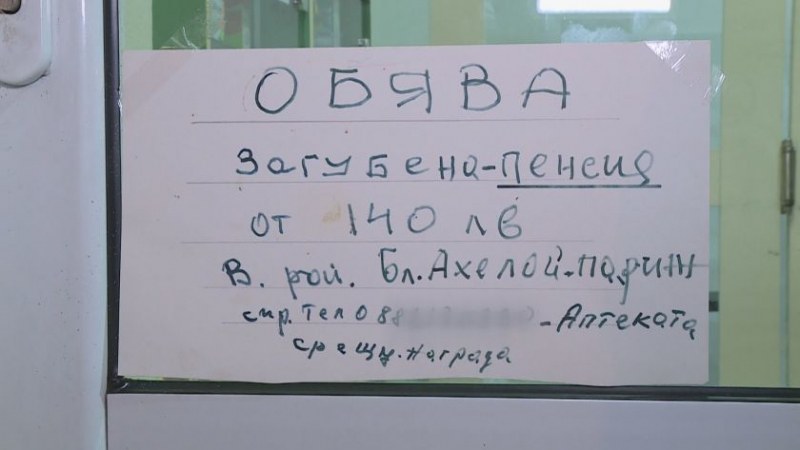 ОБЯВА
Загубена-пенсия
от 140 лв
в. рай. Бл. Ахелой-
спр. Тел 088 - Аптеката
срещу. награда